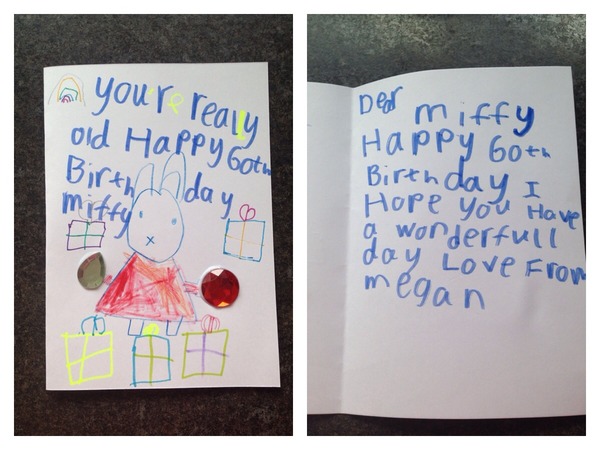 you're really
old Happy 60th
Birthday
miffy
Dear miffy
Happy 60th
Birthday I
Hope you Have
a wonderfull
day Love From
megan